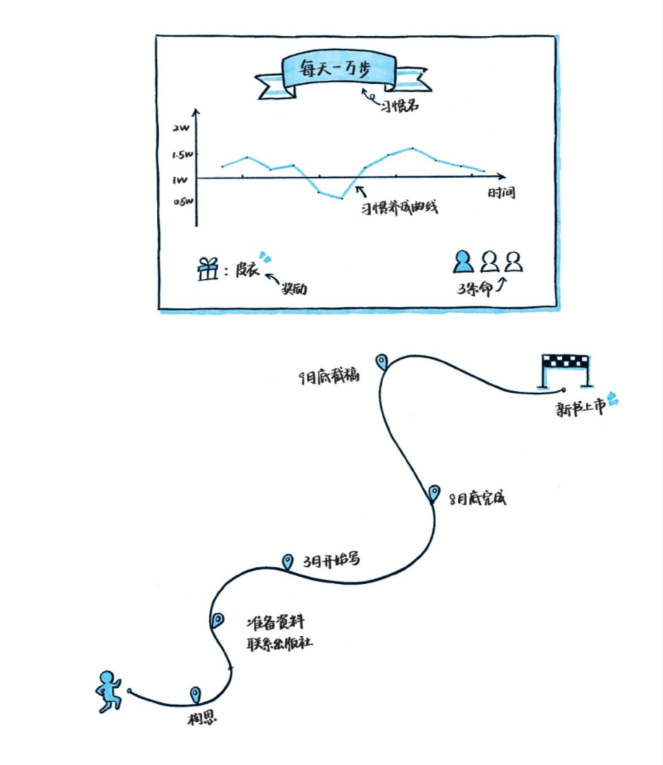 每天一万步
习惯名
2W
1.5W
1W
0.5W
时间
习惯养成曲线
：皮衣
奖励
3条命
9月底截稿
新书上市
8月底完成
3月开始写
准备资料
联系出版社
构思